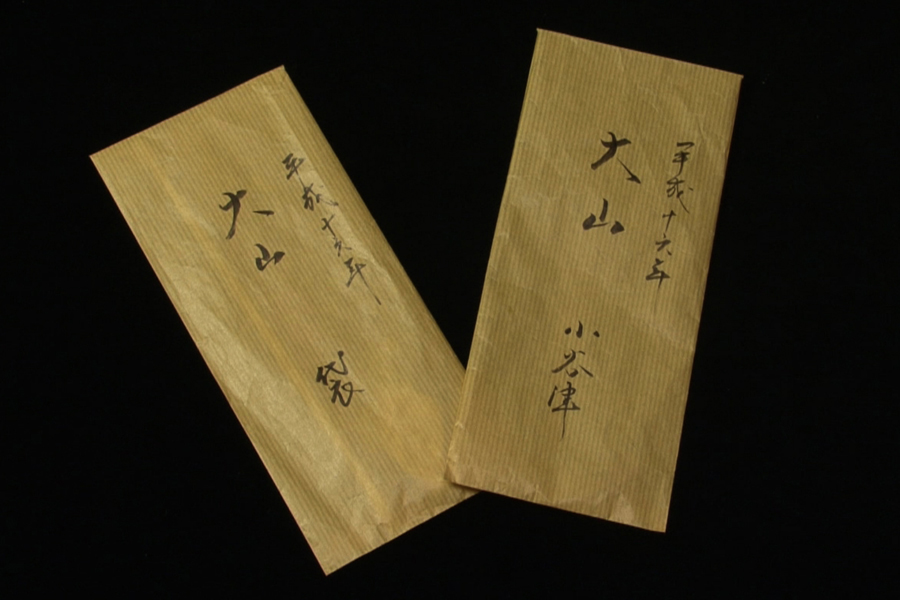 平成十六年
大山
袋
平成十六年
大山
小谷津